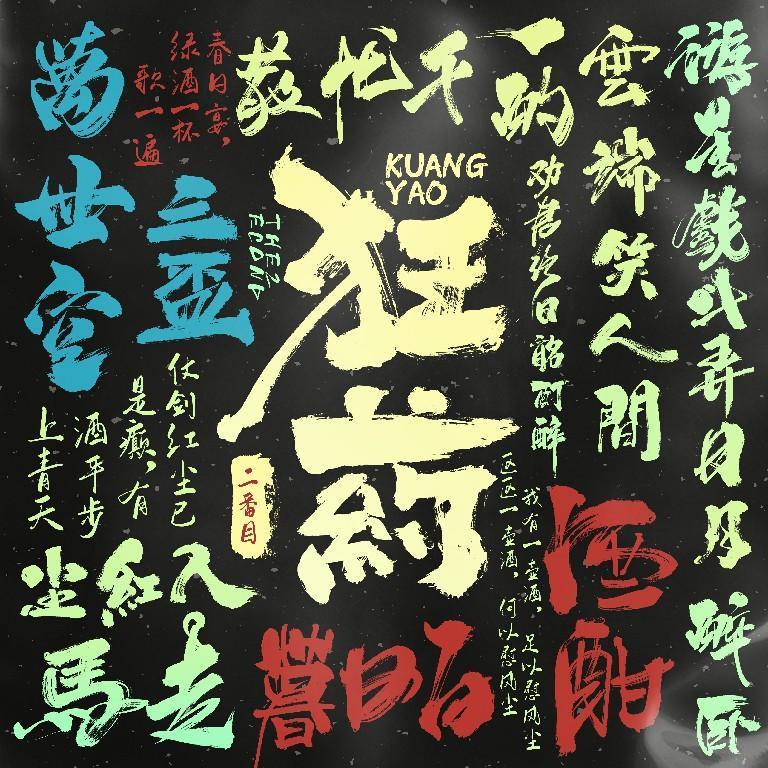 游星戲斗弄日月
醉卧
雲端笑人間
一酌
千忧散
劝君终日酩酊醉
春日宴，
绿酒一杯
歌一遍
三盃
萬世空
KUANG
YAO
狂葯
THE2
ECOND
二番目
仗剑红尘已
是癫，有
酒平步
上青天
我有一壶酒，足以慰风尘
区区一壶酒，何以慰风尘
酒酣
白日暮
走馬
入紅尘